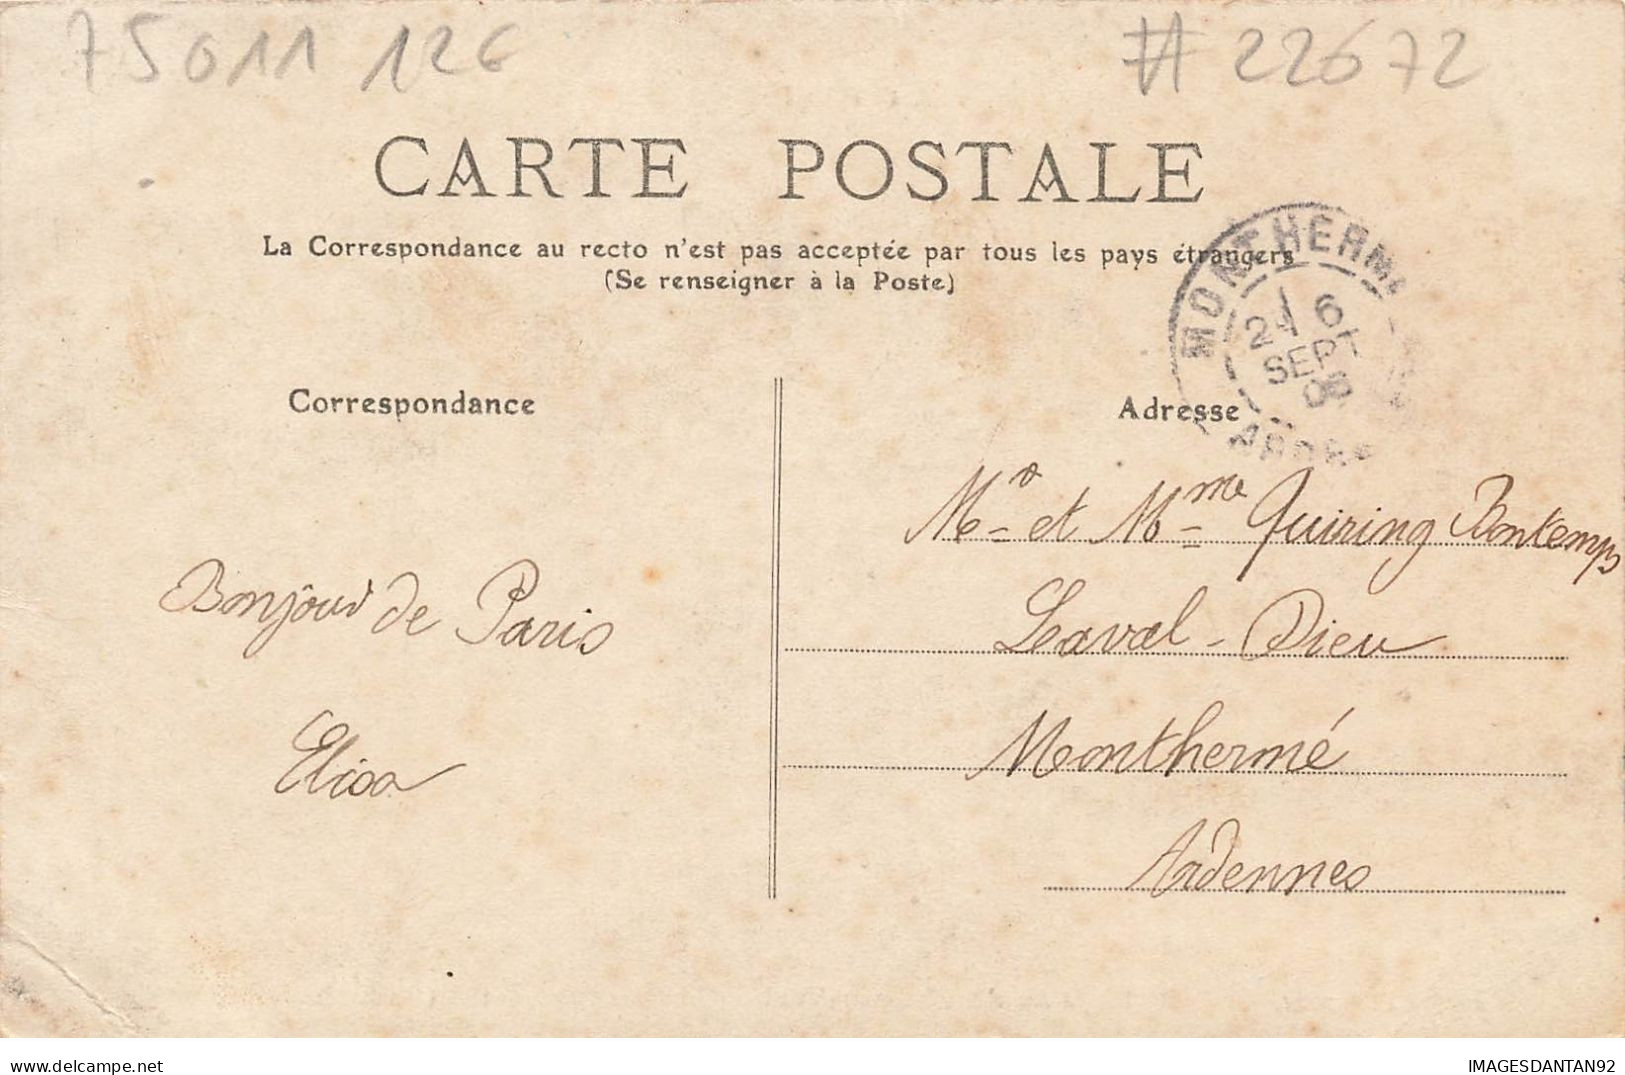 75011 12€
# 22672
CARTE POSTALE
La Correspondance au recto n'est pas acceptée par tous les pays étrangers
(Se renseigner à la Poste)
MONTHERMÉ
6
SEPT
06
Correspondance
Adresse
Mr et Mme Quiring Bontemps
Laval-Dieu
Monthermé
Ardennes
Bonjour de Paris
Elisa
IMAGESDANTAN92